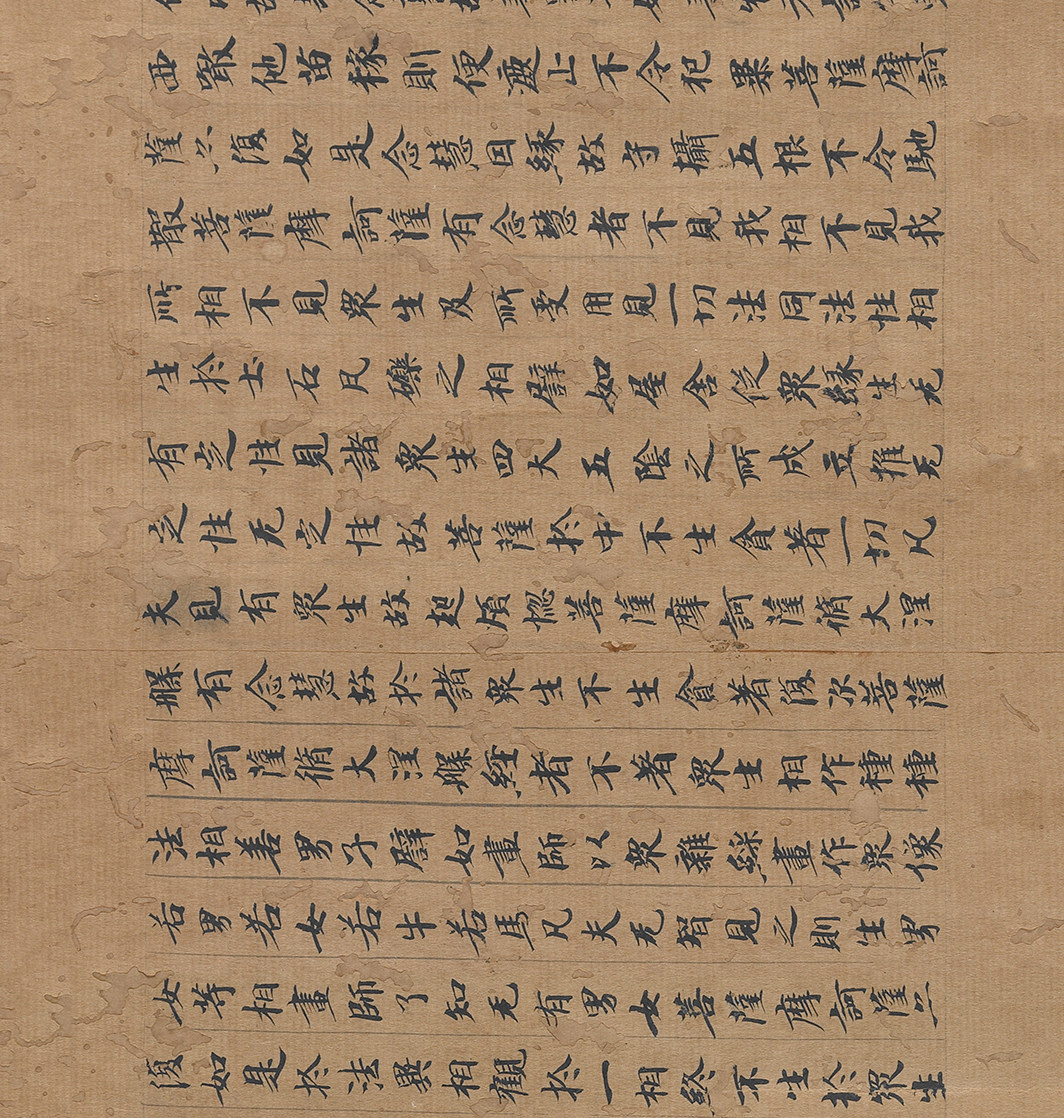 西噉他苗稼則便遮止不令犯暴菩薩摩訶
薩亦復如是念慧因緣故守攝五根不令馳
散菩薩摩訶薩有念慧者不見我相不見我
所相不見眾生及所受用見一切法同法性相
生於土石瓦礫之相譬如屋舍從眾緣生无
有定性見諸眾生四大五陰之所成立推无
定性无定性故菩薩於中不生貪著一切凡
夫見有眾生故起煩惱菩薩摩訶薩脩大涅
槃有念慧故於諸眾生不生貪著復次菩薩
摩訶薩脩大涅槃經者不著眾生相作種種
法相善男子譬如畫師以眾雜綵畫作眾像
若男若女若牛若馬凡夫无智見之則生男
女等相畫師了知无有男女菩薩摩訶薩亦
復如是於法異相觀於一相終不生於眾生